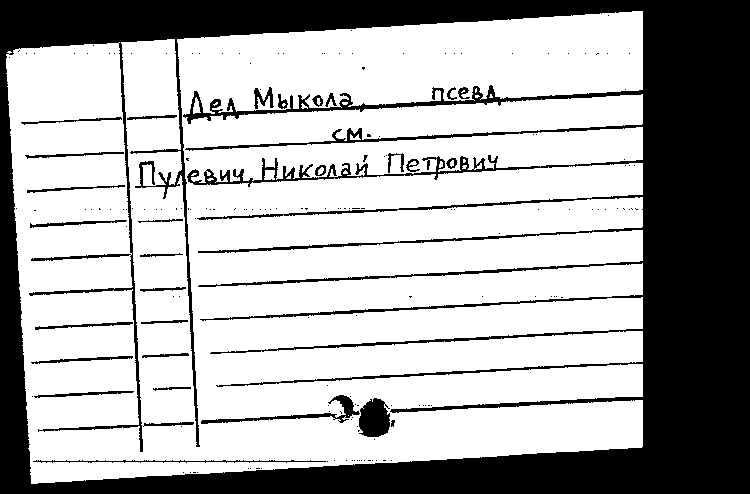 Дед Мыкола, псевд.
см.
Пулевич, Николай Петрович